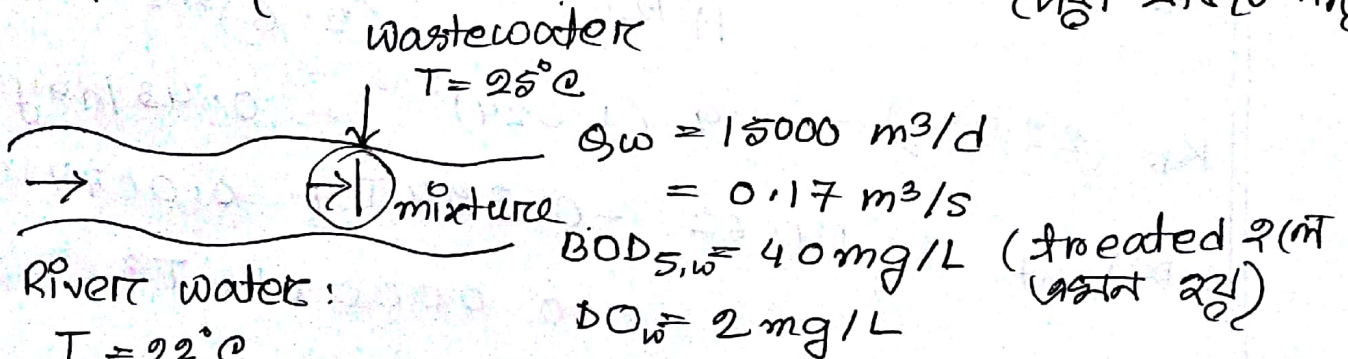 wastewater
T = 25°C
Qw = 15000 m3/d
= 0.17 m3/s
mixture
BOD5,w = 40mg/L (treated হলে
এমন হয়)
River water:
DOw = 2mg/L
T = 22°C